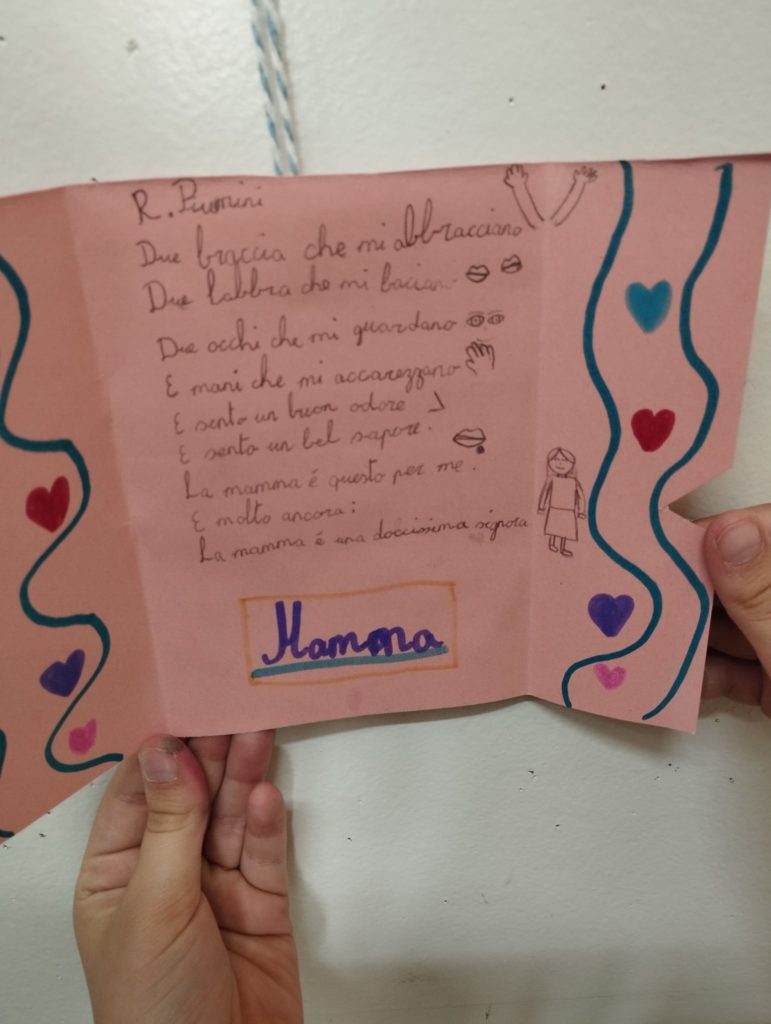 R. Piumini
Due braccia che mi abbracciano
Due labbra che mi baciano
Due occhi che mi guardano
E mani che mi accarezzano
E sento un buon odore
E sento un bel sapore.
La mamma é questo per me.
E molto ancora:
La mamma é una dolcissima signora
Mamma